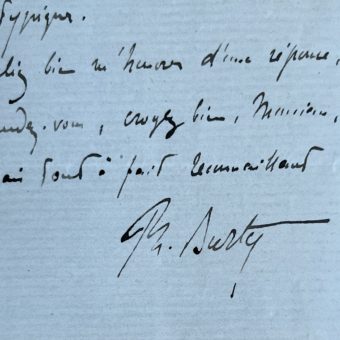 typiques.
bien m'honorer d'une réponse,
vous, croyez bien, Monsieur,
tout à fait reconnaissant
Ph. Burty